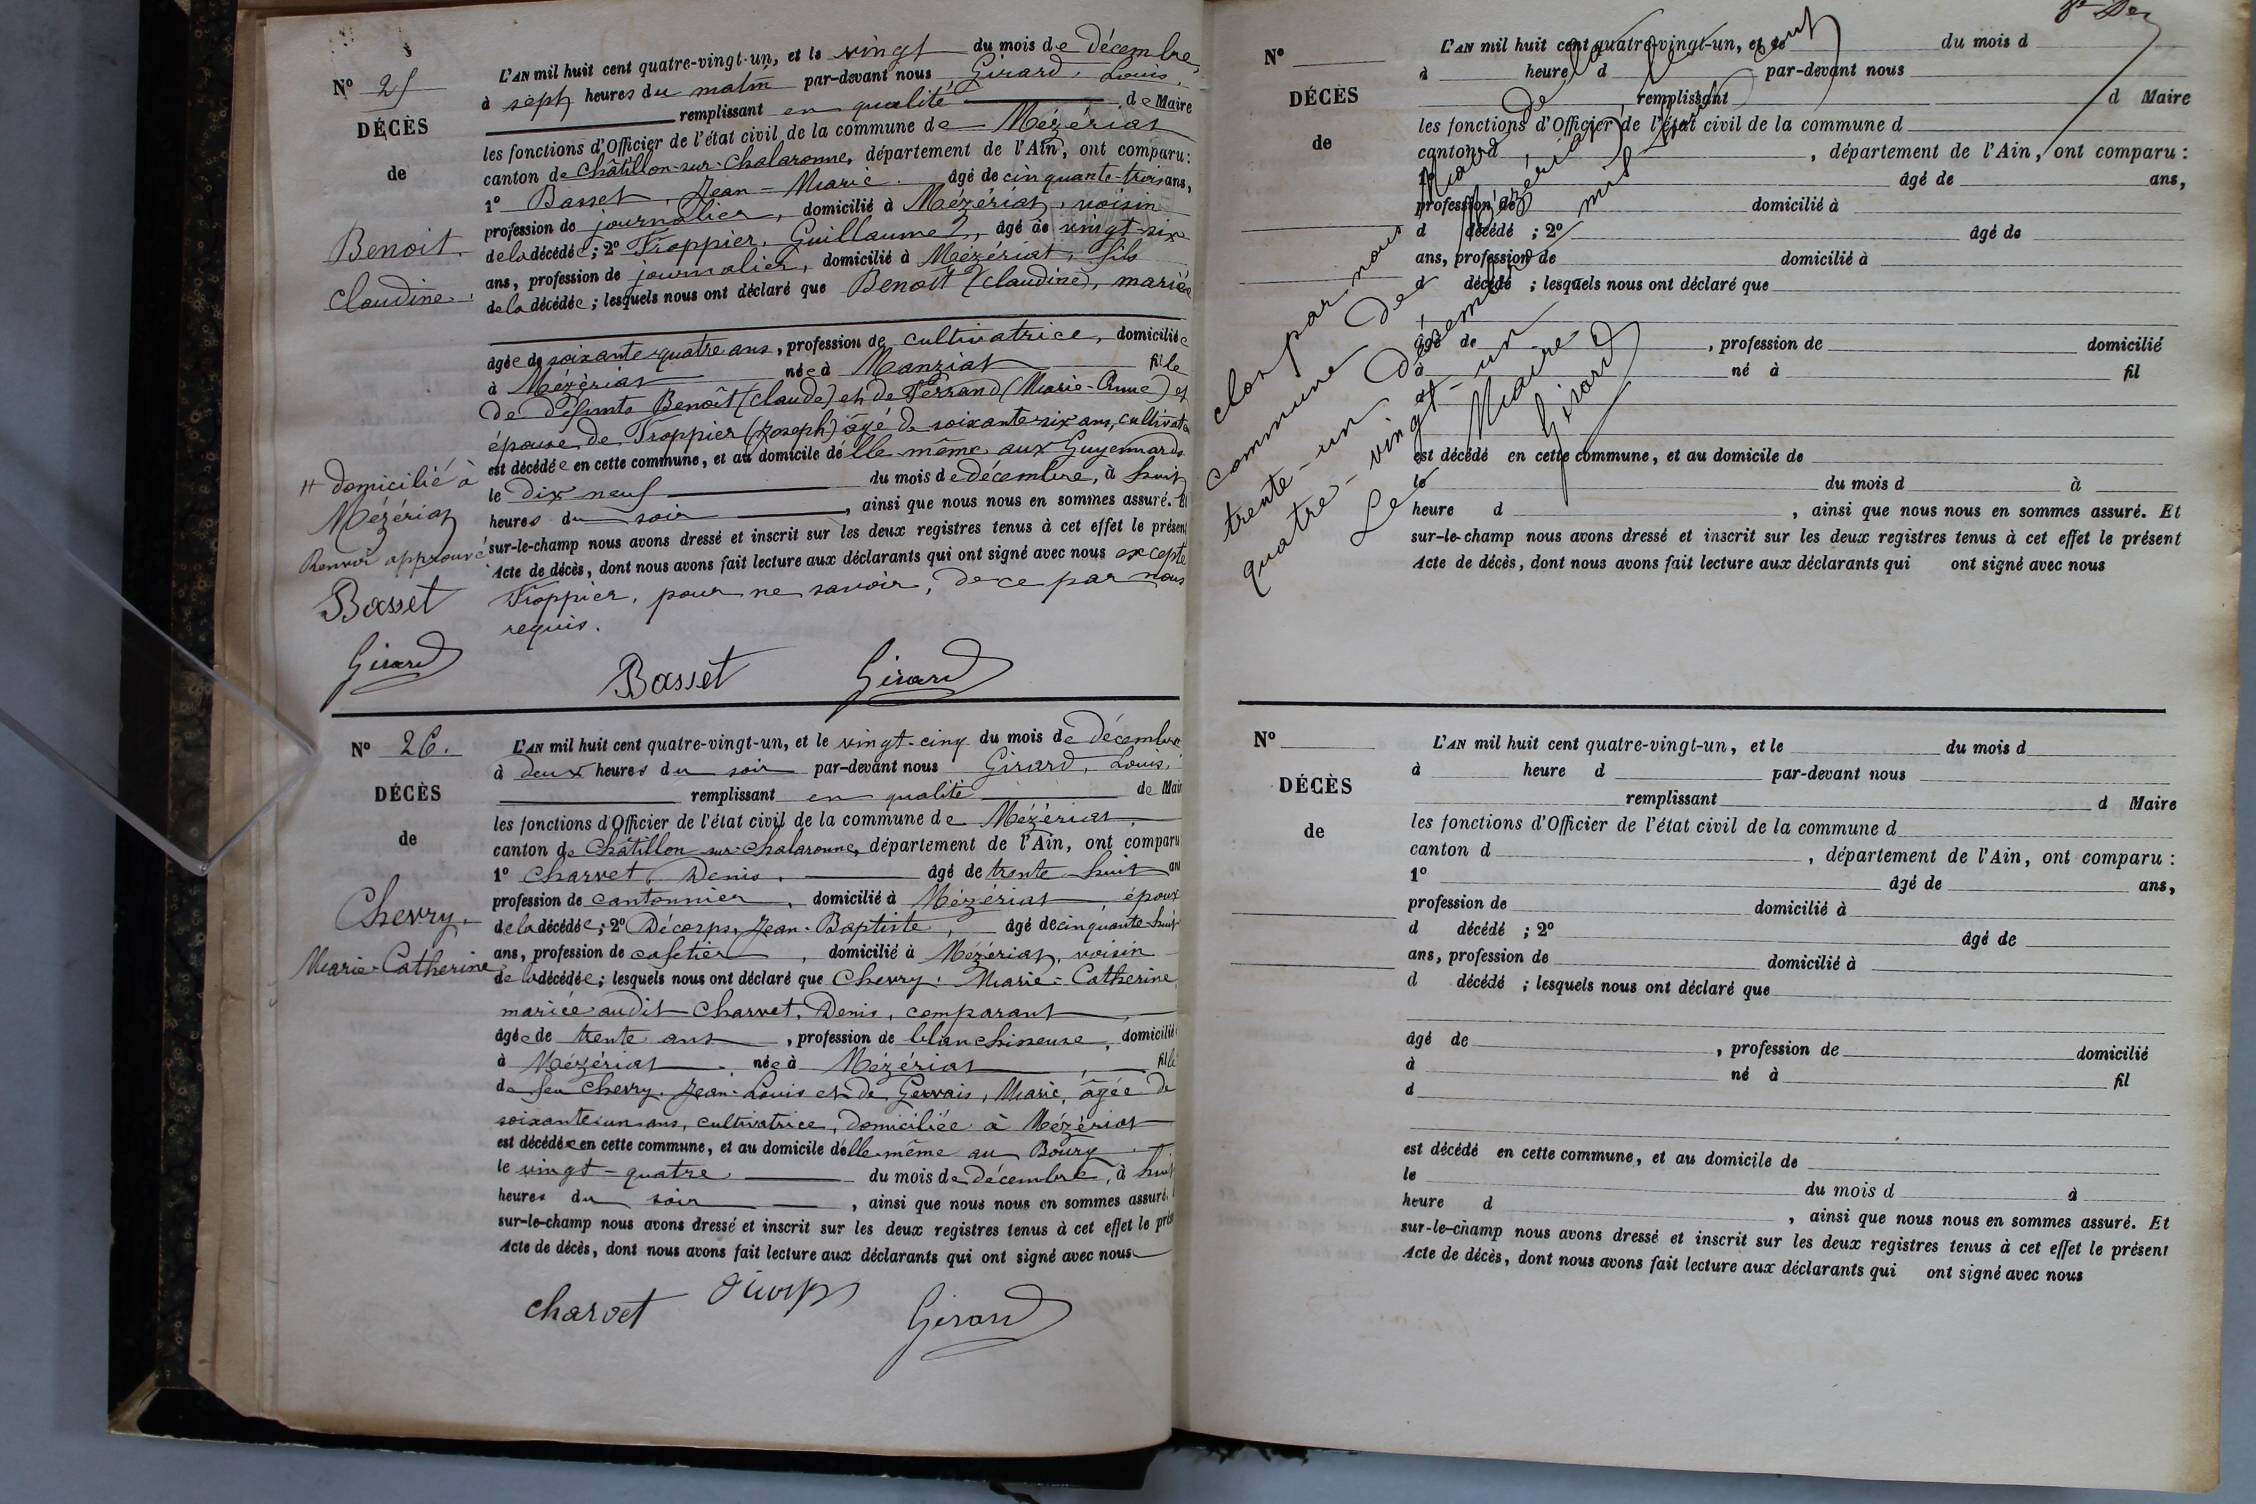 Nº 25
DÉCÈS
de
Benoit
Claudine.
L'AN mil huit cent quatre-vingt-un, et le vingt du mois de décembre,
à sept heures du matin par-devant nous Girard, Louis,
remplissant en qualité de Maire
les fonctions d'Officier de l'état civil de la commune de Mézériat
canton de Châtillon-sur-Chalaronne, département de l'Ain, ont comparu :
1º Basset, Jean-Marie. âgé de cinquante-trois ans,
profession de journalier, domicilié à Mézériat, voisin
de la décédée ; 2º Froppier, Guillaume, âgé de vingt-six
ans, profession de journalier, domicilié à Mézériat, fils
de la décédée ; lesquels nous ont déclaré que Benoît (Claudine), mariée
âgée de soixante-quatre ans, profession de cultivatrice, domiciliée
à Mézériat née à Manziat fille
de défunts Benoît (Claude) et de Ferrand (Marie-Anne) et
épouse de Froppier (Joseph) âgé de soixante six ans, cultivate
est décédée en cette commune, et au domicile d'elle même aux Guyennards
le dix neuf du mois de décembre, à huit
heures du soir, ainsi que nous nous en sommes assuré. Et
sur-le-champ nous avons dressé et inscrit sur les deux registres tenus à cet effet le présent
Acte de décès, dont nous avons fait lecture aux déclarants qui ont signé avec nous excepté
Froppier, pour ne savoir, de ce par nous
requis.
H domicilié à
Mézériat
Renvoi approuvé
Basset
Girard
Basset Girard
Nº 26.
DÉCÈS
de
Chevry.
Marie-Catherine
L'AN mil huit cent quatre-vingt-un, et le vingt-cinq du mois de Décembre
à deux heures du soir par-devant nous Girard, Louis,
remplissant en qualité de Mair
les fonctions d'Officier de l'état civil de la commune de Mézériat,
canton de Châtillon-sur-Chalaronne, département de l'Ain, ont comparu
1º Charvet, Denis. âgé de trente huit ans
profession de cantonnier, domicilié à Mézériat, époux
de la décédée ; 2º Décorps, Jean-Baptiste, âgé de cinquante-huit
ans, profession de cafetier, domicilié à Mézériat, voisin
de la décédée ; lesquels nous ont déclaré que Chevry, Marie-Catherine
mariée audit Charvet, Denis, comparant
âgée de trente ans, profession de blanchisseuse, domicilié
à Mézériat, née à Mézériat, fille
de feu Chevry, Jean-Louis et de Gervais, Marie, âgée de
soixante un ans, cultivatrice, domiciliée à Mézériat
est décédée en cette commune, et au domicile d'elle même au Bourg
le vingt-quatre du mois de décembre, à huit
heures du soir, ainsi que nous nous en sommes assuré.
sur-le-champ nous avons dressé et inscrit sur les deux registres tenus à cet effet le prés
Acte de décès, dont nous avons fait lecture aux déclarants qui ont signé avec nous
Charvet Girard
Nº
DÉCÈS
de
L'AN mil huit cent quatre-vingt-un, et le du mois d
à heure d par-devant nous
remplissant d Maire
les fonctions d'Officier de l'état civil de la commune d
canton d , département de l'Ain, ont comparu :
1º âgé de ans,
profession de domicilié à
d décédé ; 2º âgé de
ans, profession de domicilié à
d décédé ; lesquels nous ont déclaré que
âgé de , profession de domicilié
à né à fil
est décédé en cette commune, et au domicile de
le du mois d à
heure d , ainsi que nous nous en sommes assuré. Et
sur-le-champ nous avons dressé et inscrit sur les deux registres tenus à cet effet le présent
Acte de décès, dont nous avons fait lecture aux déclarants qui ont signé avec nous
clos par nous Maire de la
commune de Mézériat, le
trente-un Décembre mil huit cent
quatre-vingt-un
Le Maire
Girard
Nº
DÉCÈS
de
L'AN mil huit cent quatre-vingt-un, et le du mois d
à heure d par-devant nous
remplissant d Maire
les fonctions d'Officier de l'état civil de la commune d
canton d , département de l'Ain, ont comparu :
1º âgé de ans,
profession de domicilié à
d décédé ; 2º âgé de
ans, profession de domicilié à
d décédé ; lesquels nous ont déclaré que
âgé de , profession de domicilié
à né à fil
d
est décédé en cette commune, et au domicile de
le du mois d à
heure d , ainsi que nous nous en sommes assuré. Et
sur-le-champ nous avons dressé et inscrit sur les deux registres tenus à cet effet le présent
Acte de décès, dont nous avons fait lecture aux déclarants qui ont signé avec nous